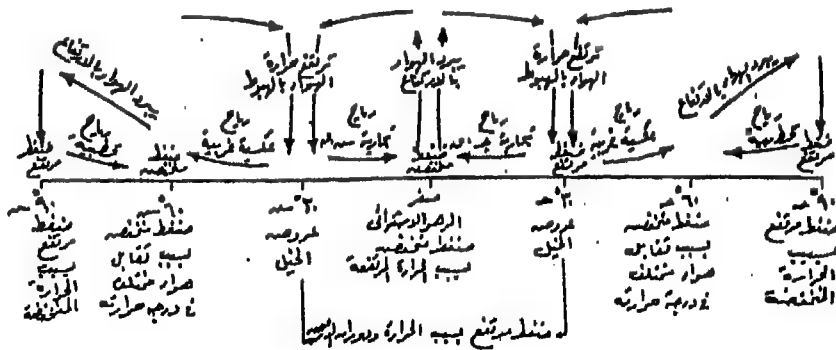 ترتفع حرارة
الهواء بالهبوط
يبرد الهواء
بالارتفاع
ترتفع حرارة
الهواء بالهبوط
يبرد الهواء بالارتفاع
يبرد الهواء بالارتفاع
ضغط
مرتفع
رياح
قطبية
ضغط
منخفض
رياح
عكسية غربية
رياح
تجارية
ضغط
منخفض
رياح
تجارية
ضغط
مرتفع
رياح
عكسية غربية
رياح
قطبية
ضغط
مرتفع
٩٠°
ضغط
مرتفع
بسبب
الحرارة
المنخفضة
٦٠°
ضغط منخفض
بسبب تقابل
هواء مختلف
في درجة حرارته
٣٠°
عروض
الخيل
صفر
الرهو الاستوائي
ضغط منخفض
بسبب الحرارة المرتفعة
٣٠°
عروض
الخيل
٦٠°
ضغط منخفض
بسبب تقابل
هواء مختلف
في درجة حرارته
٩٠°
ضغط مرتفع
بسبب
الحرارة
المنخفضة
ضغط مرتفع بسبب الحرارة ودوران